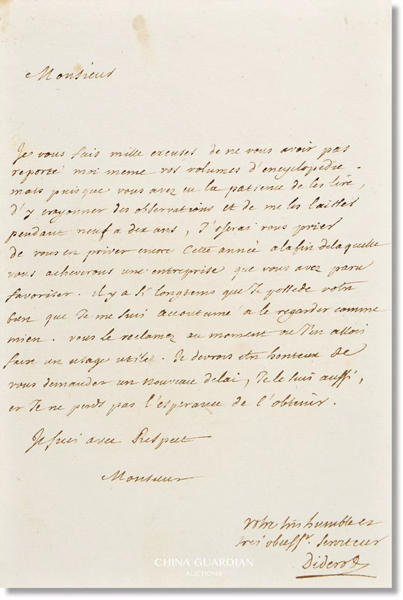 Monsieur
Je vous fais mille excuses de ne vous avoir pas
reporté moi meme vos volumes d'encyclopedie.
mais puisque vous avez eu la patience de les lire,
d'y crayonner des observations et de me les laisser
pendant neuf a dix ans, J'oserai vous prier
de vous en priver encore Cette année a la fin de la quelle
nous acheverons une entreprise que vous avez paru
favoriser. il y a si longtems que Je possede votre
bien que Je me suis accoutumé a le regarder comme
mien. vous le reclamez au moment ou J'en allois
faire un usage utile. Je devrois etre honteux de
vous demander un nouveau delai, Je le suis aussi,
et Je ne perds pas l'esperance de l'obtenir.
Je suis avec Respect
Monsieur
Votre tres humble et
tres obeissr. serviteur
Diderot
CHINA GUARDIAN
AUCTIONS